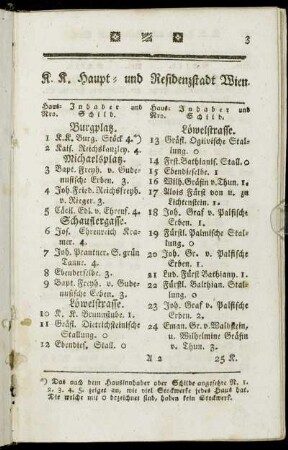 3
K. K. Haupt- und Residenzstadt Wien.
Haus- Inhaber und
Nro. Schild.
Burgplatz.
1 K.K. Burg. Stöck 4.*)
2 Kais. Reichskanzley. 4
Michaelsplatz.
3 Bapt. Freyh. v. Gude-
nusische Erben. 3.
4 Joh. Fried. Reichsfreyh.
v. Rieger. 3.
5 Cäcil. Edl. v. Ehrenf. 4.
Schauflergasse.
6 Jos. Ehrenreich Kra-
mer. 4.
7 Joh. Prantner. S. grün
Tannr. 4.
8 Ebenderselbe. 3.
9 Bapt. Freyh. v. Gude-
nusische Erben. 3.
Löwelstrasse.
10 K. K. Brunnstube. 1.
11 Gräfl. Dietrichsteinische
Stallung. 0.
12 Ebendies. Stall. 0
Haus- Inhaber und
Nro. Schild.
Löwelstrasse.
13 Gräfl. Ogilvische Stal-
lung. 0.
14 Frst. Bathianis. Stall. 0
15 Ebendieselbe. 1.
16 Wilh. Gräfin v. Thun. 1.
17 Alois Fürst von u. zu
Lichtenstein. 1.
18 Joh. Graf v. Palfische
Erben. 1.
19 Fürstl. Palmische Stal-
lung. 0
20 Joh. Gr. v. Palfische
Erben. 1.
21 Lud. Fürst Bathiany. 1.
22 Fürstl. Bathian. Stal-
lung. 0
23 Joh. Graf v. Palfische
Erben. 2
24 Eman. Gr. v. Waldstein,
u. Wilhelmine Gräfin
v. Thun. 3.
A 2 25 K.
*) Das nach dem Hausinnhaber oder Schilde angesetzte N. 1.
2. 3. 4. 5. zeiget an, wie viel Stockwerke jedes Haus hat.
Die welche mit 0 bezeichnet sind, haben kein Stockwerk.